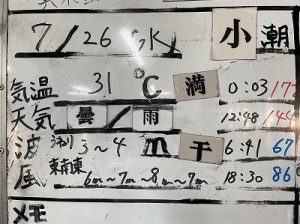 7/26 (水) 小潮
気温 31 ℃ 満 0:03 172
天気 曇/雨 12:48 144
波 3~4 m 干 6:41 67
風 南東 6m~7m~8m~7m 18:30 86
メモ